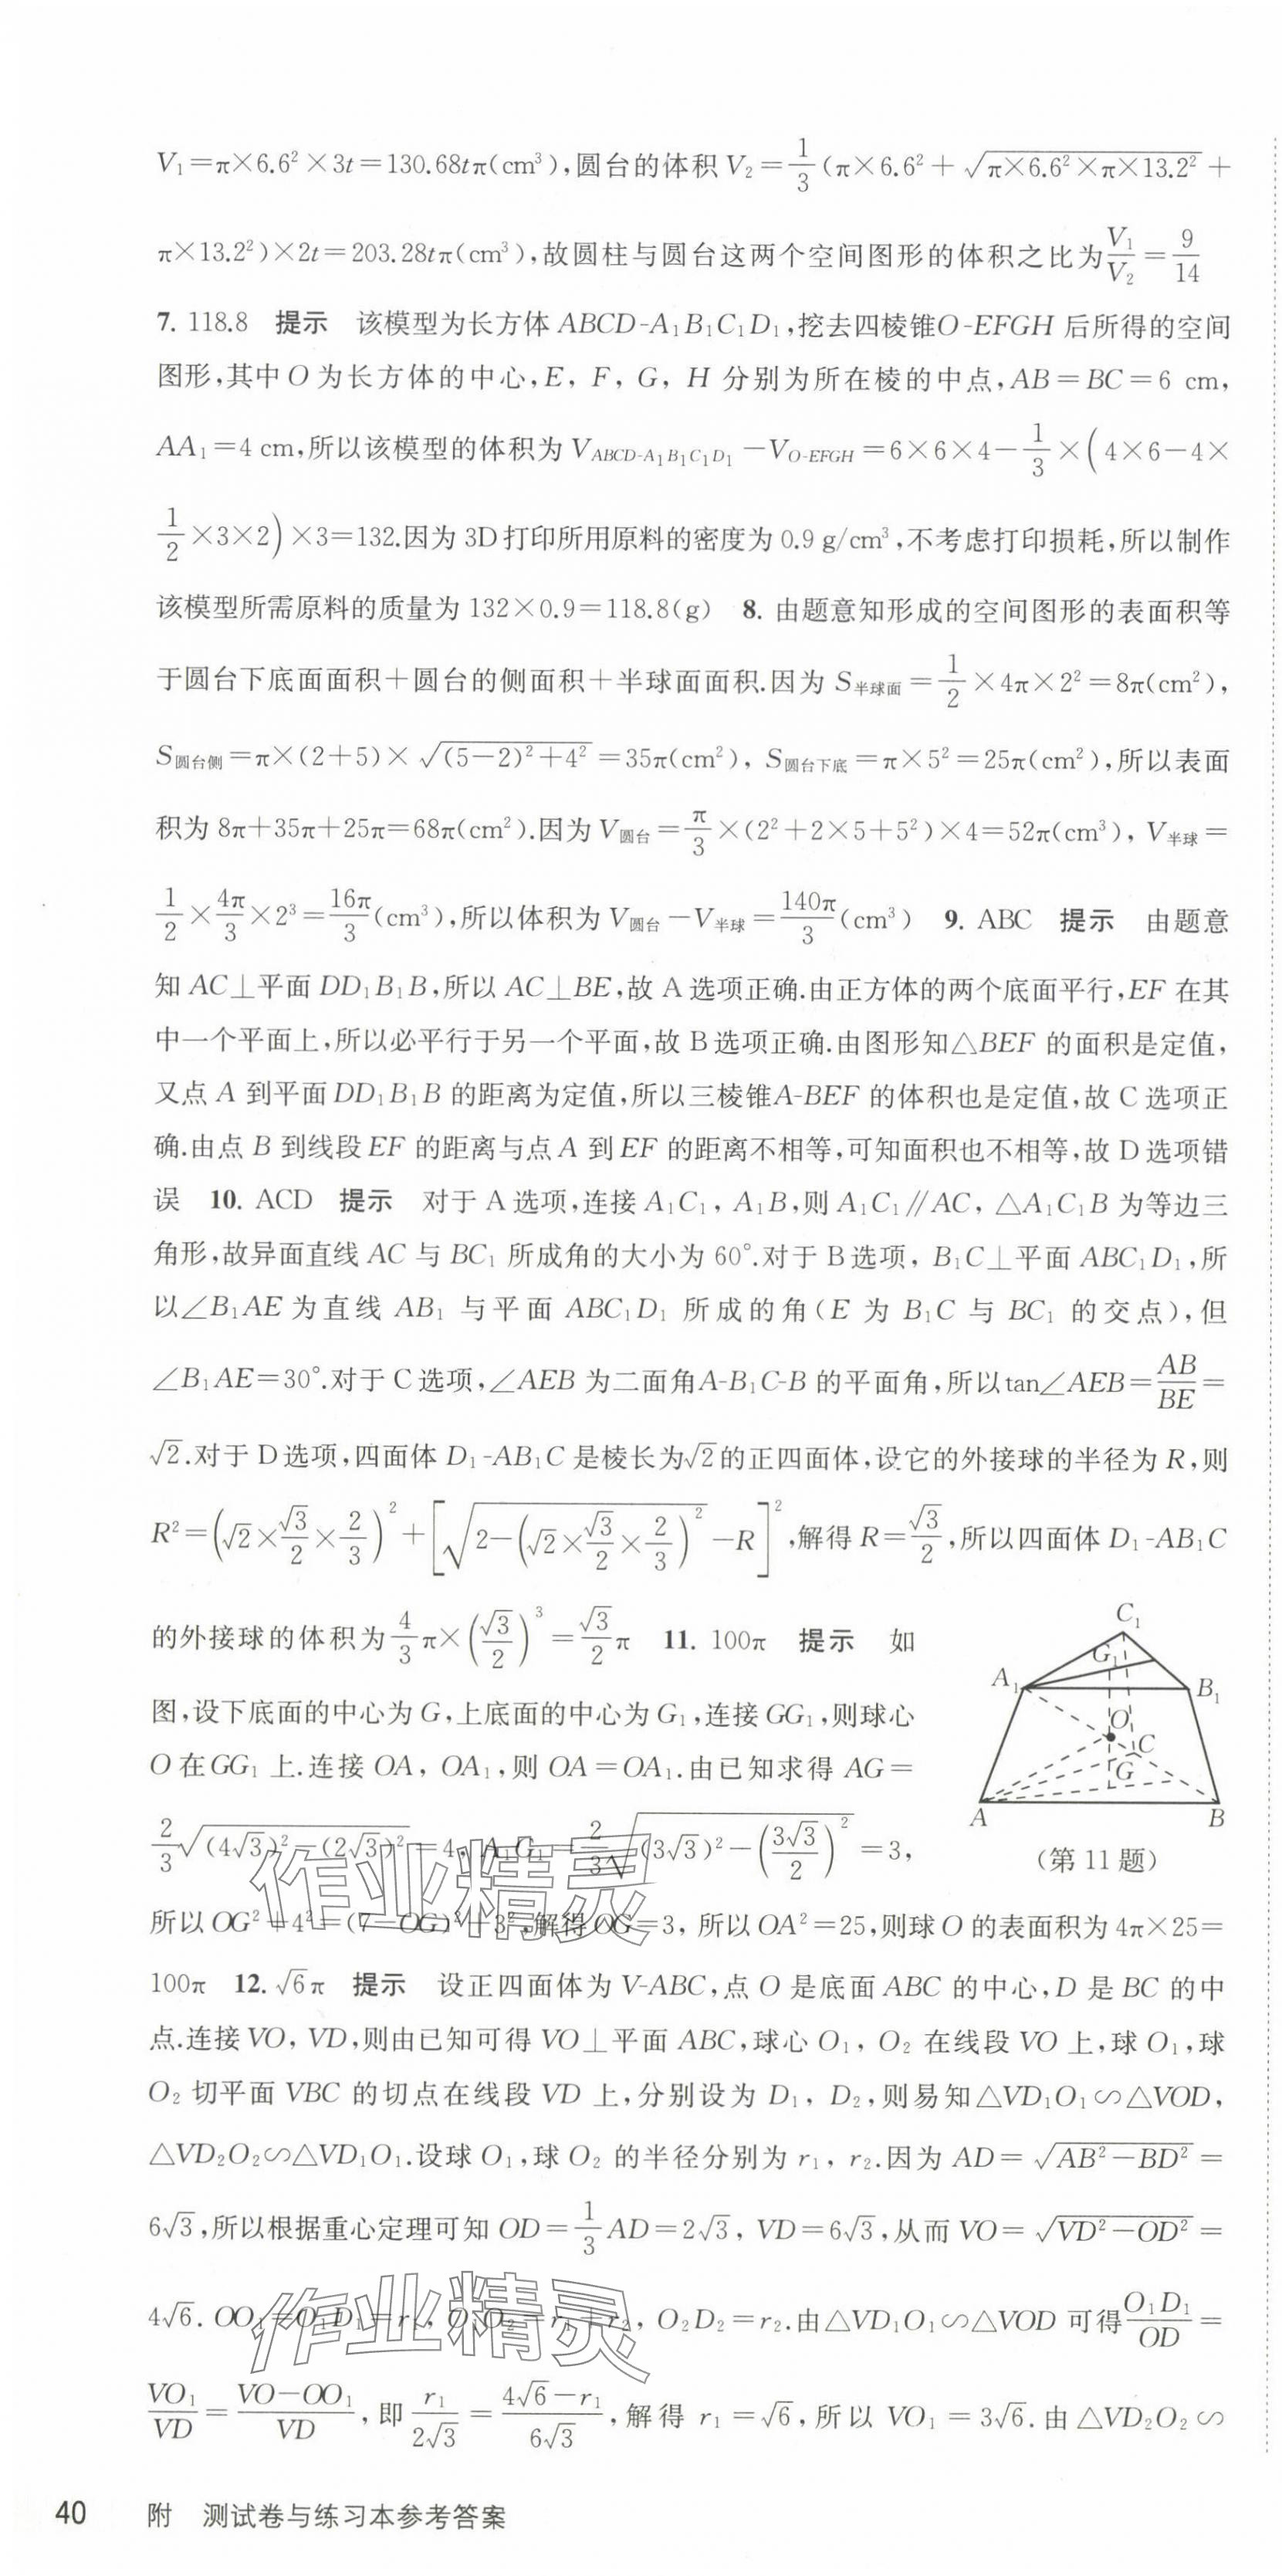 V₁=π×6.6²×3t=130.68tπ(cm³),圆台的体积V₂=1/3(π×6.6²+√(π×6.6²×π×13.2²)+
π×13.2²)×2t=203.28tπ(cm³),故圆柱与圆台这两个空间图形的体积之比为V₁/V₂=9/14
7. 118.8 提示 该模型为长方体ABCD-A₁B₁C₁D₁,挖去四棱锥O-EFGH后所得的空间
图形,其中O为长方体的中心,E, F, G, H分别为所在棱的中点,AB=BC=6 cm,
AA₁=4 cm,所以该模型的体积为V_{ABCD-A₁B₁C₁D₁}-V_{O-EFGH}=6×6×4-1/3×(4×6-4×
1/2×3×2)×3=132.因为3D打印所用原料的密度为0.9 g/cm³,不考虑打印损耗,所以制作
该模型所需原料的质量为132×0.9=118.8(g) 8. 由题意知形成的空间图形的表面积等
于圆台下底面面积+圆台的侧面积+半球面面积.因为S半球面=1/2×4π×2²=8π(cm²),
S圆台侧=π×(2+5)×√((5-2)²+4²)=35π(cm²), S圆台下底=π×5²=25π(cm²),所以表面
积为8π+35π+25π=68π(cm²).因为V圆台=π/3×(2²+2×5+5²)×4=52π(cm³), V半球=
1/2×4π/3×2³=16π/3(cm³),所以体积为V圆台-V半球=140π/3(cm³) 9. ABC 提示 由题意
知AC⊥平面DD₁B₁B,所以AC⊥BE,故A选项正确.由正方体的两个底面平行,EF在其
中一个平面上,所以必平行于另一个平面,故B选项正确.由图形知△BEF的面积是定值,
又点A到平面DD₁B₁B的距离为定值,所以三棱锥A-BEF的体积也是定值,故C选项正
确.由点B到线段EF的距离与点A到EF的距离不相等,可知面积也不相等,故D选项错
误 10. ACD 提示 对于A选项,连接A₁C₁, A₁B,则A₁C₁∥AC, △A₁C₁B为等边三
角形,故异面直线AC与BC₁所成角的大小为60°.对于B选项, B₁C⊥平面ABC₁D₁,所
以∠B₁AE为直线AB₁与平面ABC₁D₁所成的角(E为B₁C与BC₁的交点),但
∠B₁AE=30°.对于C选项,∠AEB为二面角A-B₁C-B的平面角,所以tan∠AEB=AB/BE=
√2.对于D选项,四面体D₁-AB₁C是棱长为√2的正四面体,设它的外接球的半径为R,则
R²=(√2×√3/2×2/3)²+[√(2-(√2×√3/2×2/3)²)-R]²,解得R=√3/2,所以四面体D₁-AB₁C
的外接球的体积为4/3π×(√3/2)³=√3/2π 11. 100π 提示 如
图,设下底面的中心为G,上底面的中心为G₁,连接GG₁,则球心
O在GG₁上.连接OA, OA₁,则OA=OA₁.由已知求得AG=
2/3√((4√3)²-(2√3)²)=4, A₁G₁=2/3√((3√3)²-(3√3/2)²)=3,
C₁
G₁
A₁
B₁
O
C
G
A
B
(第11题)
所以OG²+4²=(7-OG)²+3²,解得OG=3, 所以OA²=25,则球O的表面积为4π×25=
100π 12. √6π 提示 设正四面体为V-ABC,点O是底面ABC的中心,D是BC的中
点.连接VO, VD,则由已知可得VO⊥平面ABC,球心O₁, O₂在线段VO上,球O₁,球
O₂切平面VBC的切点在线段VD上,分别设为D₁, D₂,则易知△VD₁O₁∽△VOD,
△VD₂O₂∽△VD₁O₁.设球O₁,球O₂的半径分别为r₁, r₂.因为AD=√(AB²-BD²)=
6√3,所以根据重心定理可知OD=1/3AD=2√3, VD=6√3,从而VO=√(VD²-OD²)=
4√6. OO₁=O₁D₁=r₁, O₁O₂=r₁+r₂, O₂D₂=r₂.由△VD₁O₁∽△VOD可得O₁D₁/OD=
VO₁/VD=(VO-OO₁)/VD,即r₁/2√3=(4√6-r₁)/6√3,解得r₁=√6,所以VO₁=3√6.由△VD₂O₂∽
作业精灵
作业精灵
40 附 测试卷与练习本参考答案